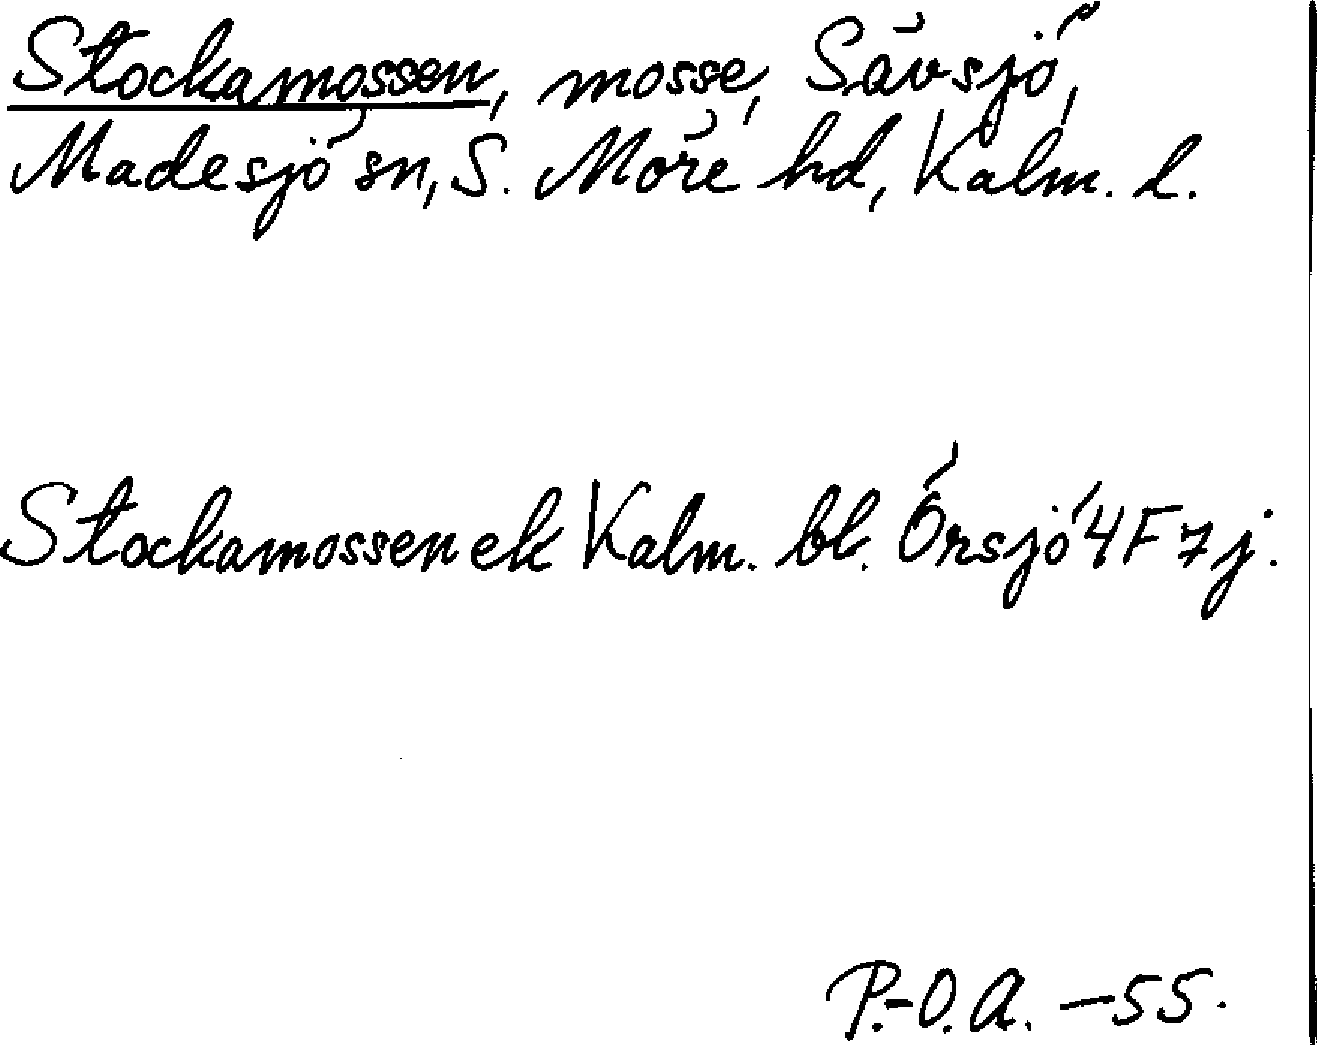 Stockamossen, mosse, Sävsjö,
Madesjö sn, S. Möre hd, Kalm. l.
Stockamossen ek Kalm. bl. Örsjö 4F 7j.
P.-O.A. -55.